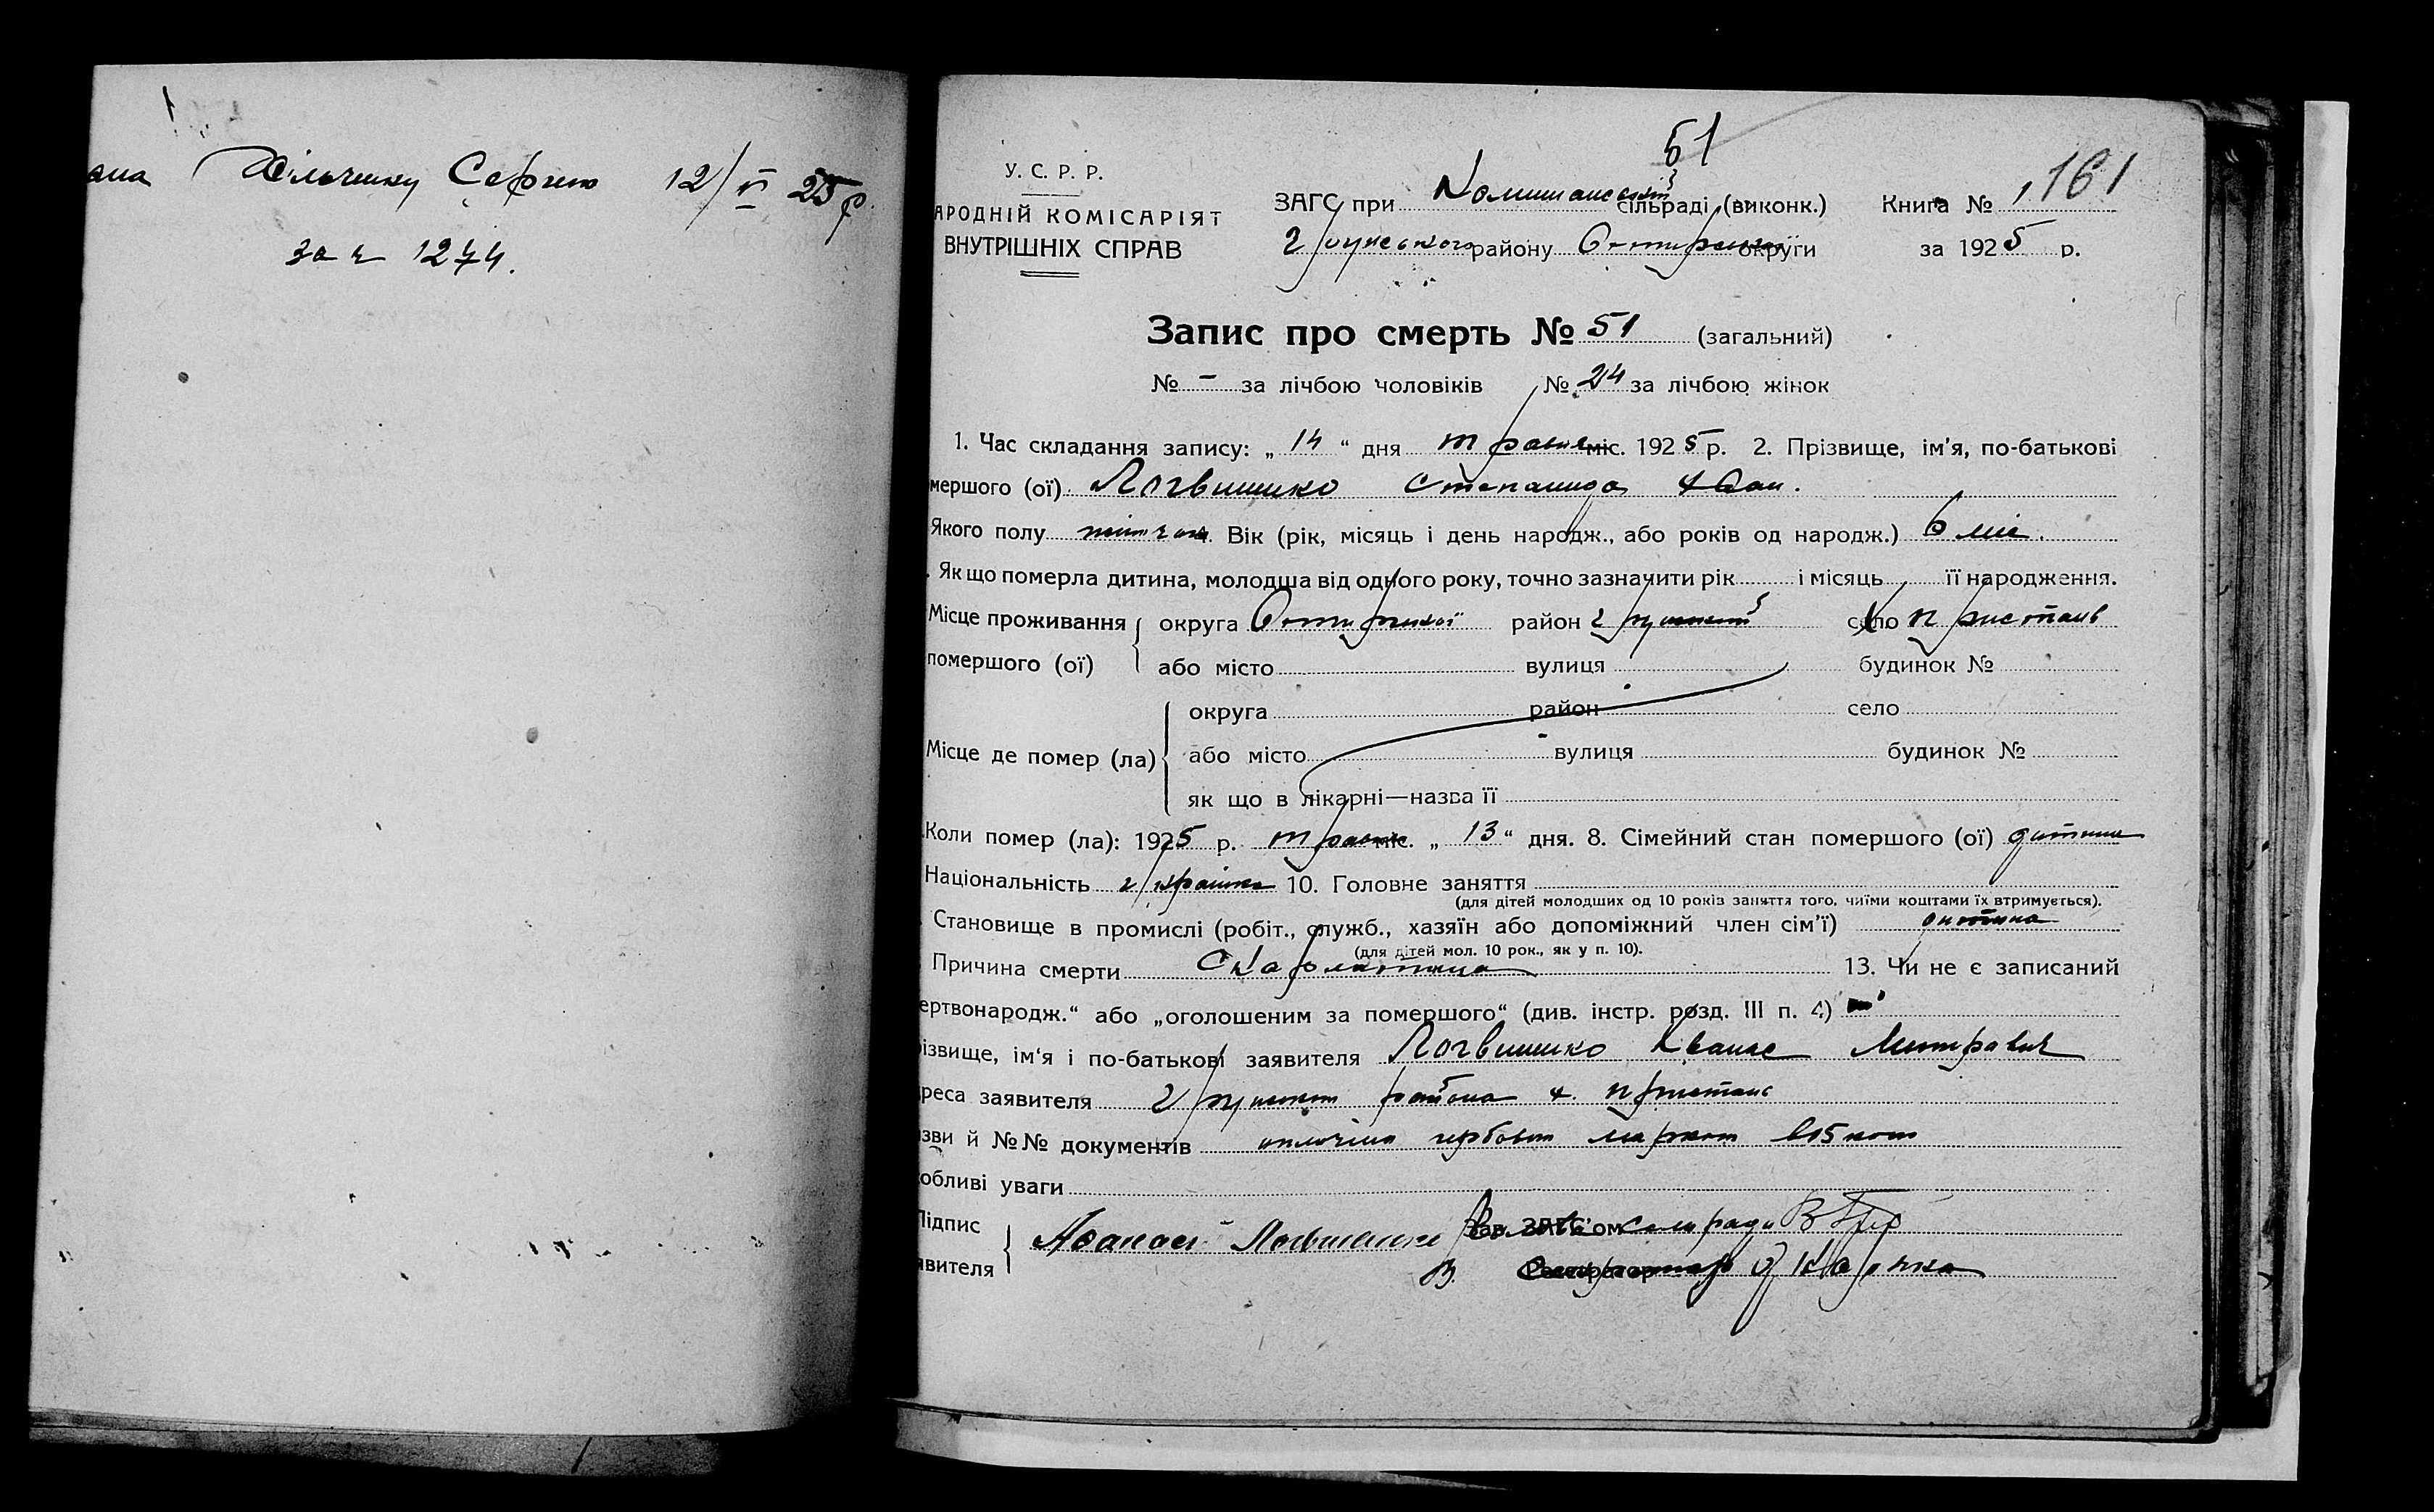 Сергію 12/VI 25 р.
за № 1274.
51
У. С. Р. Р.
АРОДНІЙ КОМІСАРІЯТ
ВНУТРІШНІХ СПРАВ
ЗАГС при сільраді (виконк.)
Грунського району Охтирської округи
Книга № 1 161
за 1925 р.
Запис про смерть № 51 (загальний)
№ - за лічбою чоловіків № 24 за лічбою жінок
1. Час складання запису: „ 14 “ дня травня міс. 1925 р. 2. Прізвище, ім'я, по-батькові
мершого (ої) Логвиненко Степанида Іван.
Якого полу жіноча Вік (рік, місяць і день народж., або років од народж.) 6 міс.
. Як що померла дитина, молодша від одного року, точно зазначити рік і місяць її народження.
Місце проживання помершого (ої)
округа Охтирської район Грунський село х Пристань
або місто вулиця будинок №
Місце де помер (ла)
округа район село
або місто вулиця будинок №
як що в лікарні—назва її
.Коли помер (ла): 1925 р. травня міс. „ 13 “ дня. 8. Сімейний стан помершого (ої) дитина
Національність українка 10. Головне заняття
(для дітей молодших од 10 років заняття того, чиїми коштами їх втримується).
. Становище в промислі (робіт., служб., хазяїн або допоміжний член сім'ї) дитина
(для дітей мол. 10 рок., як у п. 10).
. Причина смерти Скарлатина 13. Чи не є записаний
ертвонародж.“ або „оголошеним за помершого“ (див. інстр. розд. III п. 4) ні
різвище, ім'я і по-батькові заявителя Логвиненко Митрович
дреса заявителя Грунського района х. Пристань
зви й №№ документів оплочіна гербовою маркою в 15 коп
обливі уваги
Підпис
явителя
Афанасі Логвиненко
Голова сельради
Секретарь